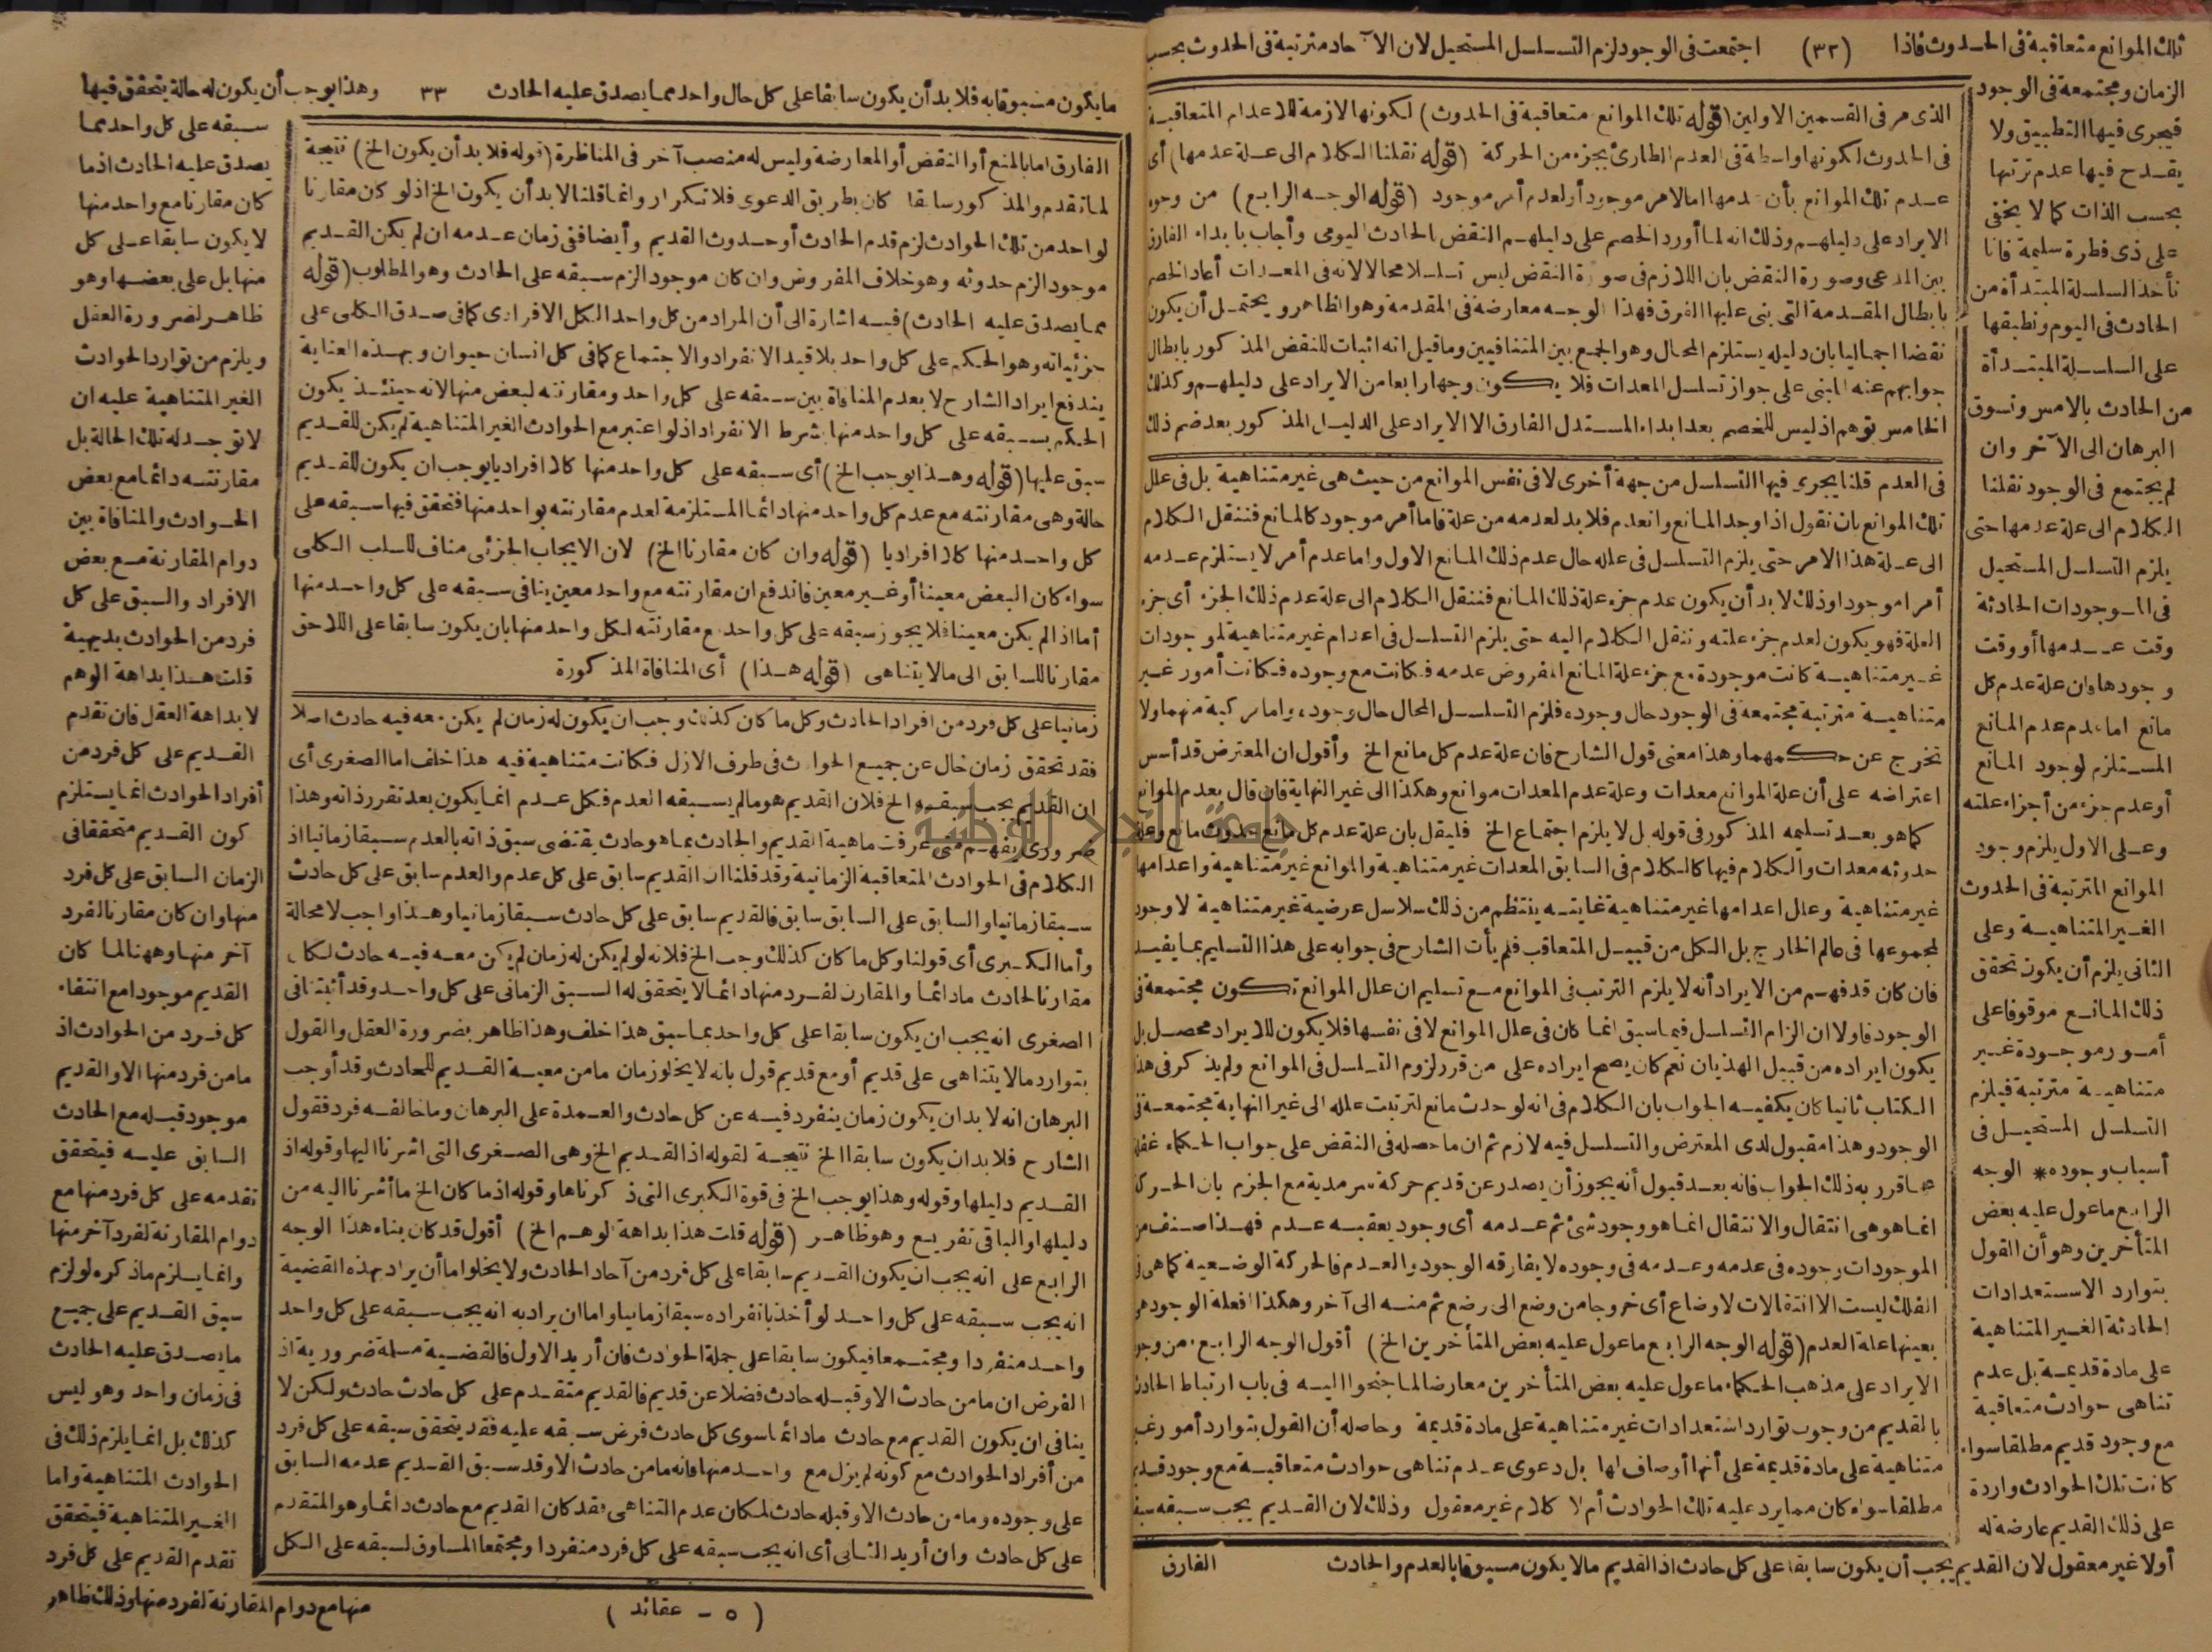 تلك الموانع متعاقبة فى الحدوث فاذا (٣٢) اجتمعت فى الوجود لزم التسلسل المستحيل لان الآحاد مترتبة فى الحدوث بحسب
الزمان ومجتمعة فى الوجود
فيجرى فيها التطبيق ولا
يقدح فيها عدم ترتبها
بحسب الذات كما لا يخفى
على ذى فطرة سليمة فانا
نأخذ السلسلة المبتدأة من
الحادث فى اليوم ونطبقها
على السلسلة المبتدأة
من الحادث بالامس ونسوق
البرهان الى الآخر وان
لم يجتمع فى الوجود نقلنا
الكلام الى علة عدمها حتى
يلزم التسلسل المستحيل
فى الموجودات الحادثة
وقت عدمها أو وقت
وجودها فان علة عدم كل
مانع اما عدم عدم المانع
المستلزم لوجود المانع
أو عدم جزء من أجزاء علته
وعلى الاول يلزم وجود
الموانع المترتبة فى الحدوث
الغير المتناهية وعلى
الثانى يلزم أن يكون تحقق
ذلك المانع موقوفا على
أمور موجودة غير
متناهية مترتبة فيلزم
التسلسل المستحيل فى
أسباب وجوده * الوجه
الرابع ما عول عليه بعض
المتأخرين وهو أن القول
بتوارد الاستعدادات
الحادثة الغير المتناهية
على مادة قديمة بل عدم
تناهى حوادث متعاقبة
مع وجود قديم مطلقا سواء
كانت تلك الحوادث واردة
على ذلك القديم عارضة له
أولا غير معقول لان القديم يجب أن يكون سابقا على كل حادث اذ القديم مالا يكون مسبوقا بالعدم والحادث
الذى مر فى القسمين الاولين (قوله تلك الموانع متعاقبة فى الحدوث) لكونها لازمة للاعدام المتعاقبة
فى الحدوث لكونها واسطة فى العدم الطارئ بجزء من الحركة (قوله نقلنا الكلام الى علة عدمها) أى
عدم تلك الموانع بأن عدمها اما لامر موجود أو لعدم أمر موجود (قوله الوجه الرابع) من وجوه
الايراد على دليلهم وذلك انه لما أورد الخصم على دليلهم النقض الحادث اليومى وأجاب بابداء الفارق
بين المدعى وصورة النقض بان اللازم فى صورة النقض ليس تسلسلا محالا لانه فى المعدات أعاد الخصم
بابطال المقدمة التى بنى عليها الفرق فهذا الوجه معارضة فى المقدمة وهو الظاهر ويحتمل أن يكون
نقضا اجماليا بان دليله يستلزم المحال وهو الجمع بين المتنافيين وما قيل انه اثبات للنقض المذكور بابطال
جوابهم عنه المبنى على جواز تسلسل المعدات فلا يكون وجها رابعا من الايراد على دليلهم وكذلك
الخامس توهم اذ ليس للخصم بعد ابداء المستدل الفارق الا الايراد على الدليل المذكور بعد ضم ذلك
فى العدم قلنا يجرى فيها التسلسل من جهة أخرى لا فى نفس الموانع من حيث هى غير متناهية بل فى علل
تلك الموانع بان نقول اذا وجد المانع وانعدم فلا بد لعدمه من علة فاما أمر موجود كالمانع فننقل الكلام
الى علة هذا الامر حتى يلزم التسلسل فى علله حال عدم ذلك المانع الاول واما عدم أمر لا يستلزم عدمه
أمرا موجودا وذلك لا بد أن يكون عدم جزء علة ذلك المانع فننقل الكلام الى علة عدم ذلك الجزء أى جزء
العلة فهو يكون لعدم جزء علته وننقل الكلام اليه حتى يلزم التسلسل فى اعدام غير متناهية لموجودات
غير متناهية كانت موجودة مع جزء علة المانع المفروض عدمه فكانت مع وجوده فكانت أمور غير
متناهية مترتبة مجتمعة فى الوجود حال وجوده فلزم التسلسل المحال حال وجوده واما مركبة منهما ولا
تخرج عن حكمهما وهذا معنى قول الشارح فان علة عدم كل مانع الخ وأقول ان المعترض قد أسس
اعتراضه على أن علة الموانع معدات وعلة عدم المعدات موانع وهكذا الى غير النهاية فان قال بعدم الموانع
كما هو بعد تسليمه المذكور فى قوله بل لا يلزم اجتماع الخ فليقل بان علة عدم كل مانع حدوث مانع وعلة
حدوثه معدات والكلام فيها كالكلام فى السابق المعدات غير متناهية والموانع غير متناهية واعدامها
غير متناهية وعلل اعدامها غير متناهية غايته ينتظم من ذلك سلاسل عرضية غير متناهية لا وجود
لمجموعها فى عالم الخارج بل الكل من قبيل المتعاقب فلم يأت الشارح فى جوابه على هذا التسليم بما يفيد
فان كان قد فهم من الايراد أنه لا يلزم الترتب فى الموانع مع تسليم ان علل الموانع تكون مجتمعة فى
الوجود فاولا ان الزام التسلسل فيما سبق انما كان فى علل الموانع لا فى نفسها فلا يكون للايراد محصل بل
يكون ايراده من قبيل الهذيان نعم كان يصح ايراده على من قرر لزوم التسلسل فى الموانع ولم يذكر فى هذا
الكتاب ثانيا كان يكفيه الجواب بان الكلام فى انه لو حدث مانع لترتبت علله الى غير النهاية مجتمعة فى
الوجود وهذا مقبول لدى المعترض والتسلسل فيه لازم ثم ان ما حصله فى النقض على جواب الحكماء غفلة
عما قرر به ذلك الجواب فانه بعد قبول أنه يجوز أن يصدر عن قديم حركة سرمدية مع الجزم بان الحركة
انما هو هى انتقال والانتقال انما هو وجود شئ ثم عدمه أى وجود يعقبه عدم فهذا صنف من
الموجودات وجوده فى عدمه وعدمه فى وجوده لا يفارقه الوجود والعدم فالحركة الوضعية كما هى فى
الفلك ليست الا انتقالات لاوضاع أى خروجا من وضع الى وضع ثم منه الى آخر وهكذا فعلة الوجود هى
بعينها علة العدم (قوله الوجه الرابع ما عول عليه بعض المتأخرين الخ) أقول الوجه الرابع من وجوه
الايراد على مذهب الحكماء ما عول عليه بعض المتأخرين معارضا لما جنحوا اليه فى باب ارتباط الحادث
بالقديم من وجوب توارد استعدادات غير متناهية على مادة قديمة وحاصله أن القول بتوارد أمور غير
متناهية على مادة قديمة على أنها أوصاف لها بل دعوى عدم تناهى حوادث متعاقبة مع وجود قديم
مطلقا سواء كان مما يرد عليه تلك الحوادث أم لا كلام غير معقول وذلك لان القديم يجب سبقه سبقا
الفارق
ما يكون مسبوقا به فلا بد أن يكون سابقا على كل حال واحد مما يصدق عليه الحادث ٣٣ وهذا يوجب أن يكون له حالة يتحقق فيها
الفارق اما بالمنع أو النقض أو المعارضة وليس له منصب آخر فى المناظرة (قوله فلا بد أن يكون الخ) نتيجة
لما تقدم والمذكور سابقا كان بطريق الدعوى فلا تكرار وانما قلنا لا بد أن يكون الخ اذ لو كان مقارنا
لواحد من تلك الحوادث لزم قدم الحادث أو حدوث القديم وأيضا ففى زمان عدمه ان لم يكن القديم
موجود الزم حدوثه وهو خلاف المفروض وان كان موجود الزم سبقه على الحادث وهو المطلوب (قوله
مما يصدق عليه الحادث) فيه اشارة الى أن المراد من كل واحد الكل الافرادى كما فى صدق الكلى على
جزئياته وهو الحكم على كل واحد بلا قيد الانفراد والاجتماع كما فى كل انسان حيوان وبهذه العناية
يندفع ايراد الشارح لا بعدم المنافاة بين سبقه على كل واحد ومقارنته لبعض منها لانه حينئذ يكون
الحكم بسبقه على كل واحد منها بشرط الانفراد اذ لو اعتبر مع الحوادث الغير المتناهية لم يكن للقديم
سبق عليها (قوله وهذا يوجب الخ) أى سبقه على كل واحد منها كلا افراديا يوجب ان يكون للقديم
حالة وهى مقارنته مع عدم كل واحد منها دائما المستلزمة لعدم مقارنته بواحد منها فتحقق فيها سبقه على
كل واحد منها كلا افراديا (قوله وان كان مقارنا الخ) لان الايجاب الجزئى مناف للسلب الكلى
سواء كان البعض معينا أو غير معين فاندفع ان مقارنته مع واحد معين ينافى سبقه على كل واحد منها
أما اذا لم يكن معينا فلا يجوز سبقه على كل واحد مع مقارنته لكل واحد منها بان يكون سابقا على اللاحق
مقارنا للسابق الى مالا يتناهى (قوله هذا) أى المنافاة المذكورة
زمانيا على كل فرد من افراد الحادث وكل ما كان كذلك وجب ان يكون له زمان لم يكن معه فيه حادث اصلا
فقد تحقق زمان خال عن جميع الحوادث فى طرف الازل فكانت متناهية فيه هذا خلف اما الصغرى أى
ان القديم يجب سبقه الخ فلان القديم هو مالم يسبقه العدم فكل عدم انما يكون بعد تقرر ذاته وهذا
ضرورى يفهم متى عرفت ماهية القديم والحادث بما هو حادث يقتضى سبق ذاته بالعدم سبقا زمانيا اذ
الكلام فى الحوادث المتعاقبة الزمانية وقد قلنا ان القديم سابق على كل عدم والعدم سابق على كل حادث
سبقا زمانيا والسابق على السابق سابق فالقديم سابق على كل حادث سبقا زمانيا وهذا واجب لا محالة
وأما الكبرى أى قولنا وكل ما كان كذلك وجب الخ فلانه لو لم يكن له زمان لم يكن معه فيه حادث لكان
مقارنا لحادث ما دائما والمقارن لفرد منها دائما لا يتحقق له السبق الزمانى على كل واحد وقد أثبتنا فى
الصغرى انه يجب ان يكون سابقا على كل واحد بما سبق هذا خلف وهذا ظاهر بضرورة العقل والقول
بتوارد مالا يتناهى على قديم أو مع قديم قول بانه لا يخلو زمان ما من معية القديم للحادث وقد أوجب
البرهان انه لا بد ان يكون زمان ينفرد فيه عن كل حادث والعمدة على البرهان وما خالفه فرد فقول
الشارح فلا بد ان يكون سابقا الخ نتيجة لقوله اذ القديم الخ وهى الصغرى التى اشرنا اليها وقوله اذ
القديم دليلها وقوله وهذا يوجب الخ فى قوة الكبرى التى ذكرناها وقوله اذ ما كان الخ ما أشرنا اليه من
دليلها والباقى تفريع وهو ظاهر (قوله قلت هذا بداهة الوهم الخ) أقول قد كان بناء هذا الوجه
الرابع على انه يجب ان يكون القديم سابقا على كل فرد من آحاد الحادث ولا يخلو اما أن يراد بهذه القضية
انه يجب سبقه على كل واحد لو أخذ بانفراده سبقا زمانيا واما ان يراد به انه يجب سبقه على كل واحد
واحد منفردا ومجتمعا فيكون سابقا على جملة الحوادث فان أريد الاول فالقضية مسلمة ضرورية اذ
الفرض ان ما من حادث الا وقبله حادث فضلا عن قديم فالقديم متقدم على كل حادث حادث ولكن لا
ينافى ان يكون القديم مع حادث ما دائما سوى كل حادث فرض سبقه عليه فقد يتحقق سبقه على كل فرد
من أفراد الحوادث مع كونه لم يزل مع واحد منها فانه ما من حادث الا وقد سبق القديم عدمه السابق
على وجوده وما من حادث الا وقبله حادث لمكان عدم التناهى فقد كان القديم مع حادث دائما وهو المتقدم
على كل حادث وان أريد الثانى أى انه يجب سبقه على كل فرد منفردا ومجتمعا المساوق لسبقه على الكل
سبقه على كل واحد مما
يصدق عليه الحادث اذ ما
كان مقارنا مع واحد منها
لا يكون سابقا على كل
منها بل على بعضها وهو
ظاهر لضرورة العقل
ويلزم من توارد الحوادث
الغير المتناهية عليه ان
لا توجد له تلك الحالة بل
مقارنته دائما مع بعض
الحوادث والمنافاة بين
دوام المقارنة مع بعض
الافراد والسبق على كل
فرد من الحوادث بديهية
قلت هذا بداهة الوهم
لا بداهة العقل فان تقدم
القديم على كل فرد من
أفراد الحوادث انما يستلزم
كون القديم متحققا فى
الزمان السابق على كل فرد
منها وان كان مقارنا لفرد
آخر منها وههنا لما كان
القديم موجودا مع انتفاء
كل فرد من الحوادث اذ
ما من فرد منها الا والقديم
موجود قبله مع الحادث
السابق عليه فيتحقق
تقدمه على كل فرد منها مع
دوام المقارنة لفرد آخر منها
وانما يلزم ما ذكره لو لزم
سبق القديم على جميع
ما يصدق عليه الحادث
فى زمان واحد وهو ليس
كذلك بل انما يلزم ذلك فى
الحوادث المتناهية واما
الغير المتناهية فيتحقق
تقدم القديم على كل فرد
منها مع دوام المقارنة لفرد منها وذلك ظاهر
( ٥ - عقائد )
جامعة النجاح الوطنية